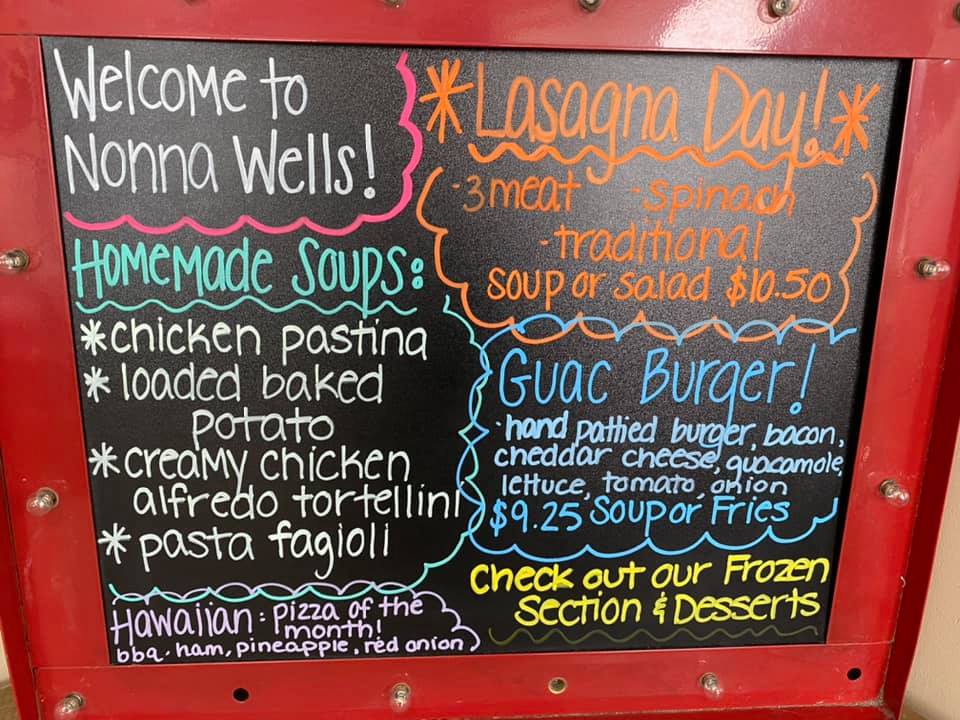 Welcome to
Nonna Wells!
Homemade Soups:
*chicken pastina
*loaded baked
potato
*creamy chicken
alfredo tortellini
*pasta fagioli
Hawaiian: pizza of the
month!
bbq. ham, pineapple, red onion
*Lasagna Day!*
·3 meat ·spinach
·traditional
soup or salad $10.50
Guac Burger!
·hand pattied burger, bacon,
cheddar cheese, guacamole,
lettuce, tomato, onion
$9.25 Soup or Fries
Check out our Frozen
Section & Desserts